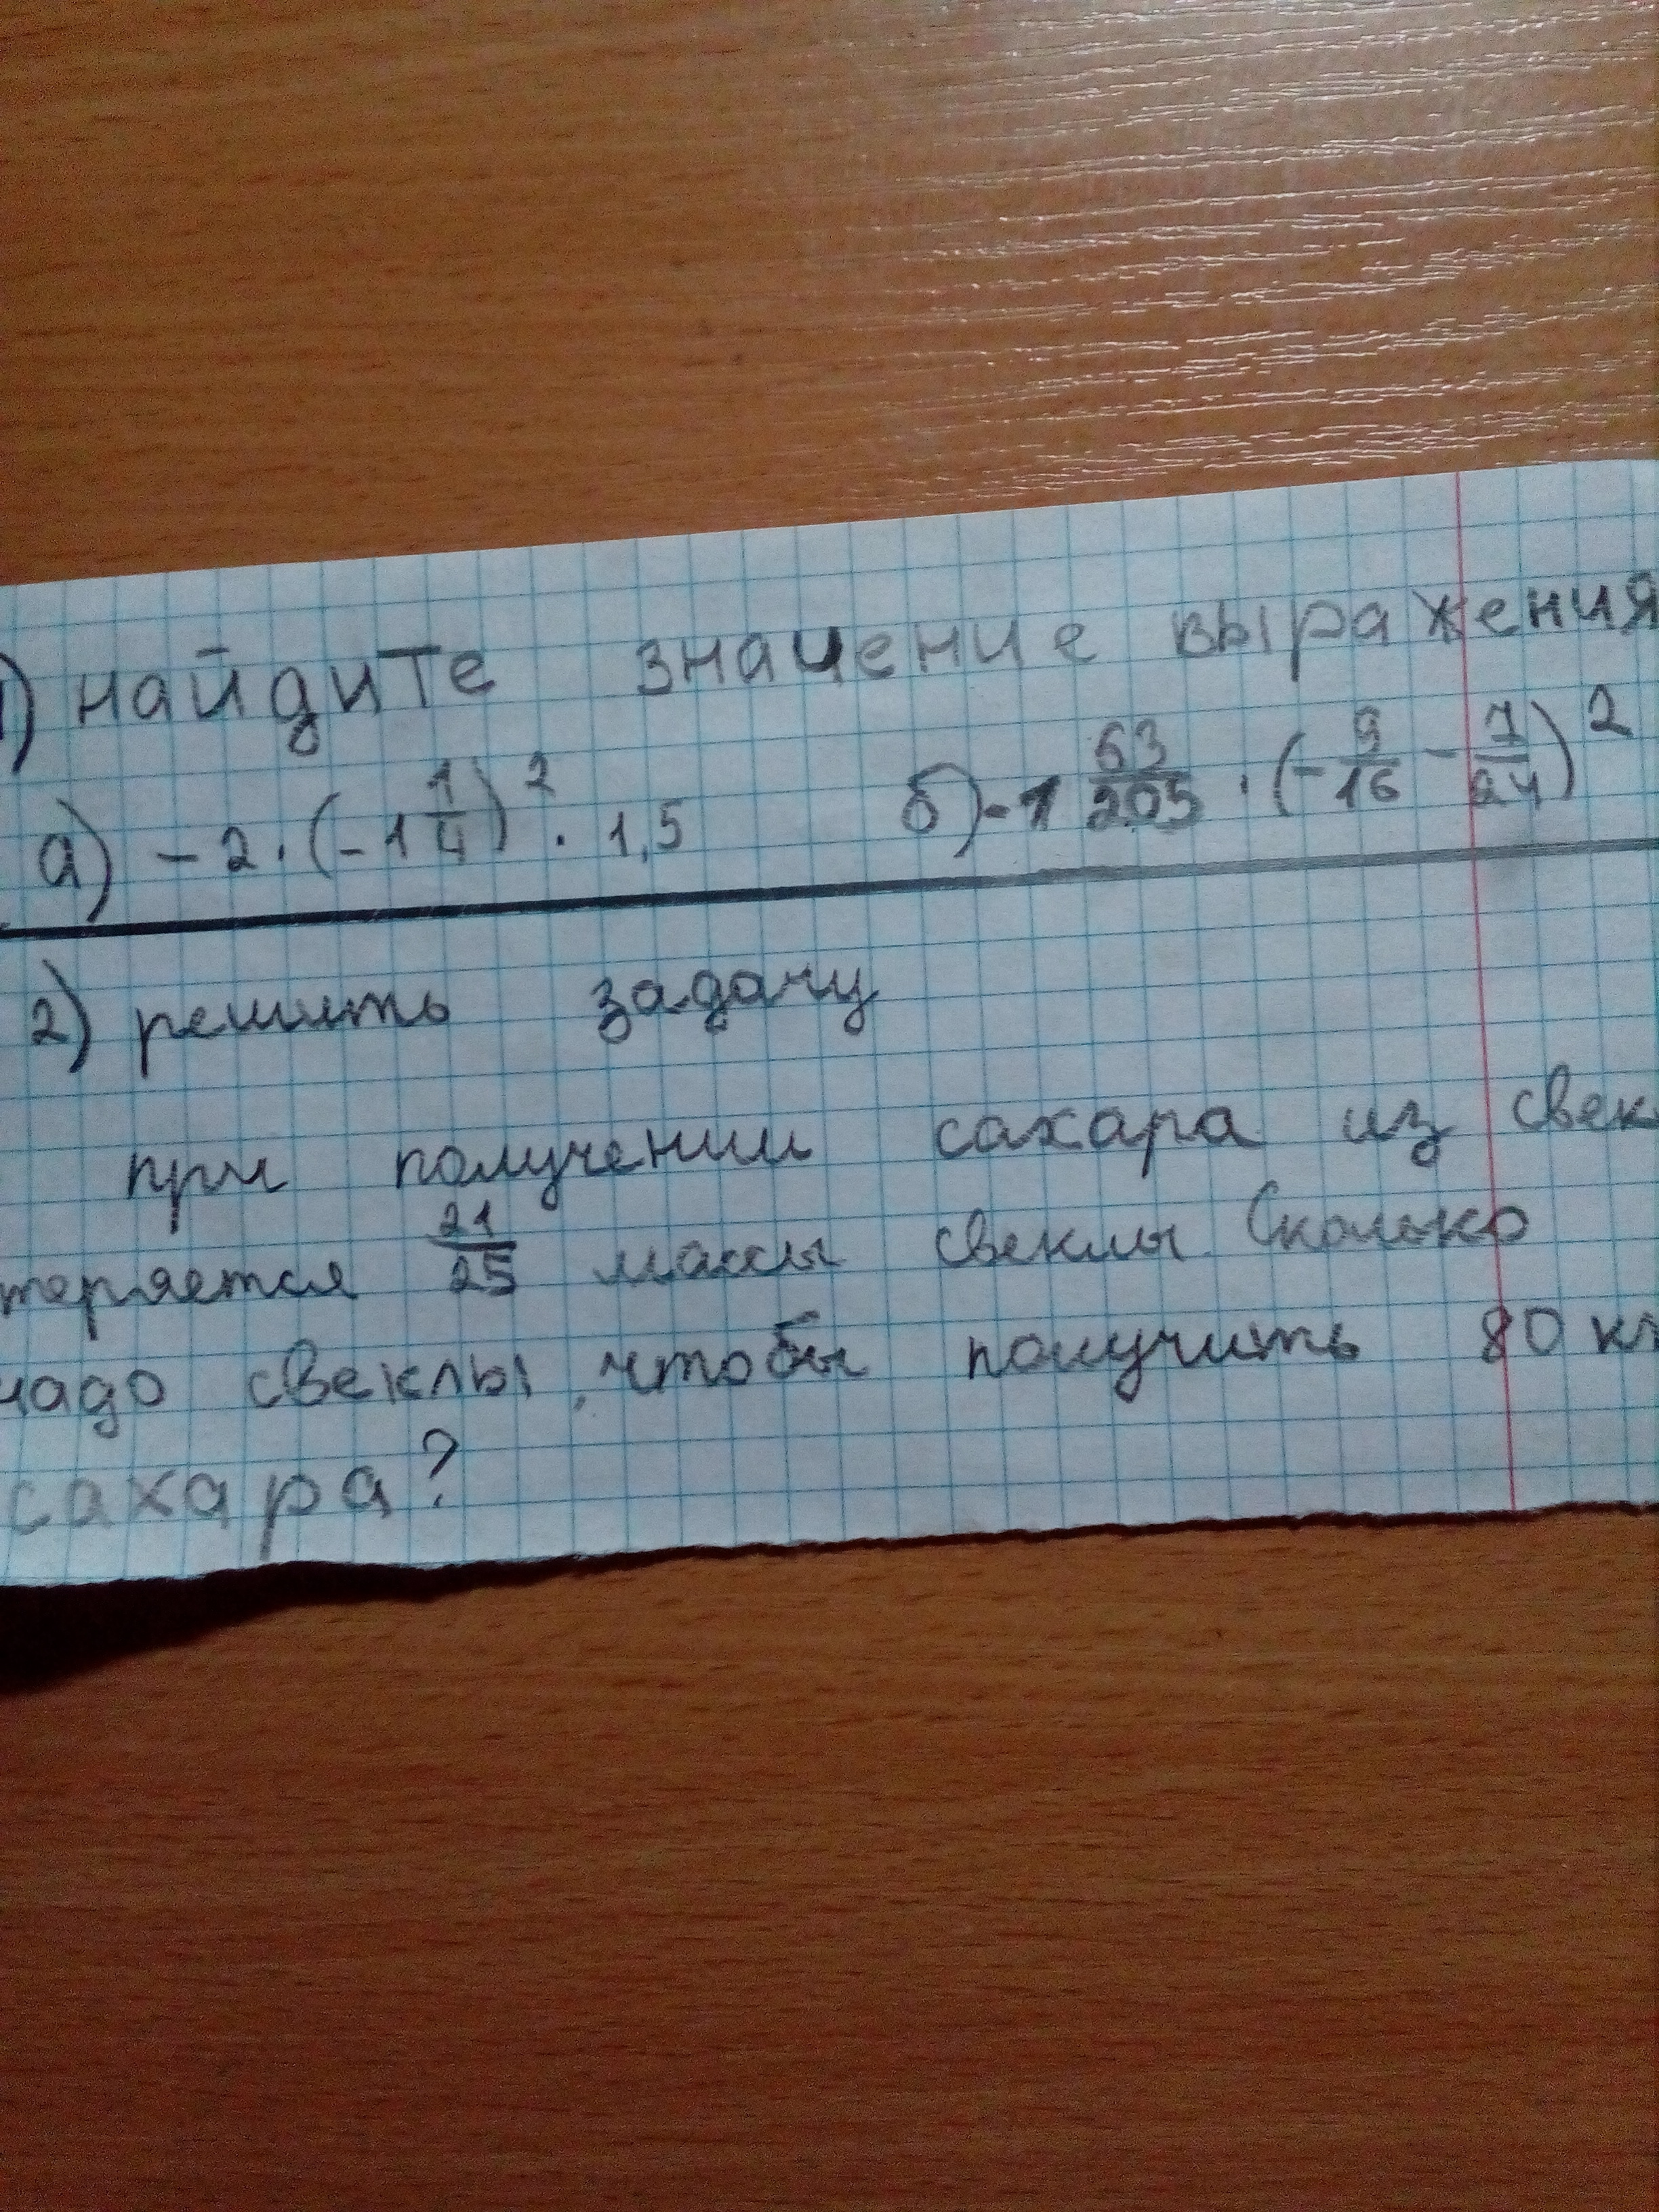 1) найдите значение выражения
а) -2·(-1 1/4)²·1,5 б) -1 63/205·(-9/16-7/24)²
2) решить задачу
при получении сахара из свек
теряется 21/25 массы свеклы. Сколько
надо свеклы, чтобы получить 80 кг
сахара?